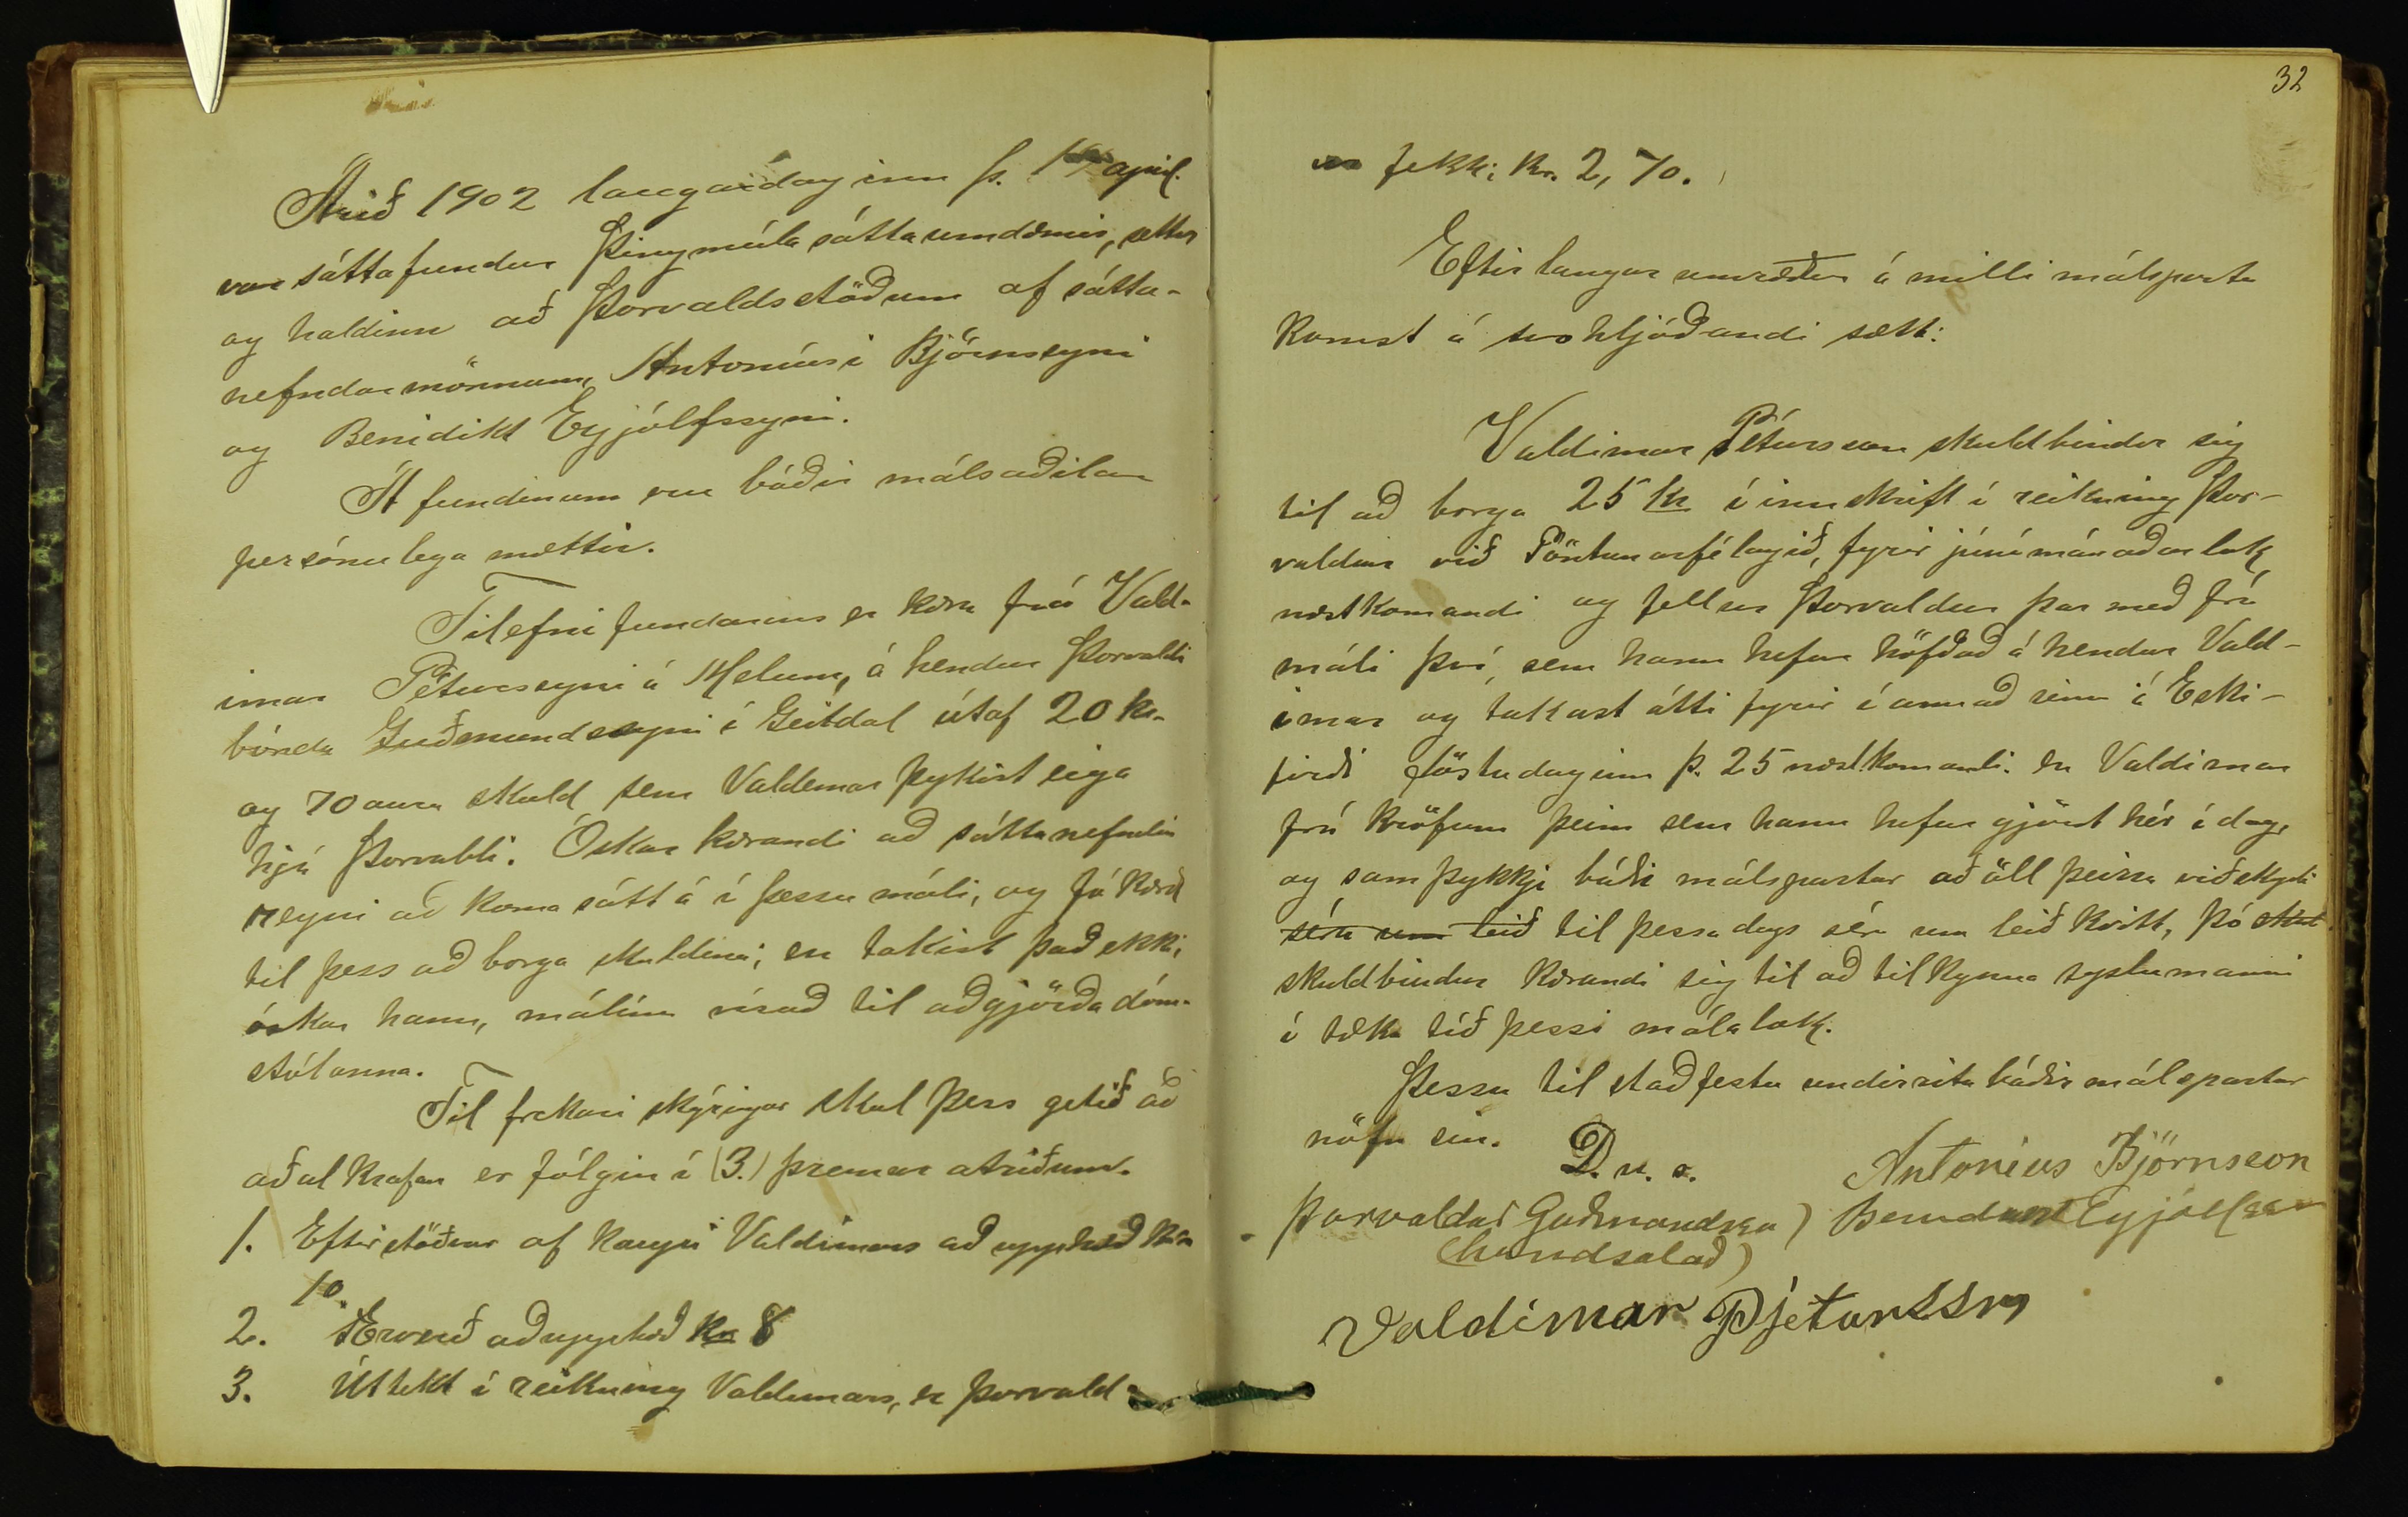 Árið 1902 laugardaginn þ. apríl.
var sáttafundur Þingmúla sáttaumdæmis, settur
og haldinn að Þorvaldsstöðum af sátta-
nefndarmönnum, Antoníusi Björnssyni
og Benidikt Eyjólfssyni.
Á fundinum eru báðir málsaðilar
persónulega mættir.
Tilefni fundarins er kæra frá Vald-
imar Péturssyni á Melum, á hendur Þorvaldi
bónda Guðmundssyni í Geitdal útaf 20 kr.
og 70 aura skuld sem Valdemar þykist eiga
hjá Þorvaldi. Óskar kærandi að sáttanefndin
reyni að koma sátt á í þessu máli, og fá kærð
til þess að borga skuldina; en takist það ekki,
óskar hann, málinu vísað til aðgjörða dóm-
stólanna.
Til frekari skýringar skal þess getið að
aðal krafan er fólgin í (3.) þremur atriðum.
1. Eftirstöðvar af kaupi Valdimars að upphæð kr.
10.
2. Ærverð að upphæð kr 8
3. Úttekt í reikning Valdimars, er Þorvald-
32
ur fekk; kr. 2,70.
Eftir langar umræður á milli málsparta
komst á svohljóðandi sætt:
Valdimar Pétursson skuldbindur sig
til að borga 25 kr í innskrift í reikning Þor-
valdur við Pöntunarfélagið, fyrir júnímánaðarlok
næstkomandi og fellur Þorvaldur þar með frá
máli því, sem hann hefur höfðað á hendur Vald-
imar og takast átti fyrir í annað sinn á Eski-
firði föstudaginn þ. 25 næstkomandi. en Valdimar
frá kröfum þeim sem hann hefur gjört hér í dag,
og samþykkja báðir málspartar að öll þeirra viðskipti
séu um leið til þessa dags séu um leið kvitt, þó skul
skuldbindur kærandi sig til að tilkynna sýslumanni
í tæka tíð þessi málalok.
Þessu til staðfestu undirrita báðir málspartar
nöfn sín.
D. u. s. Antoníus Björnsson
Þorvaldur Guðmundsson) Benedikt Eyjólfsson
(handsalað)
Valdimar Pjetursson